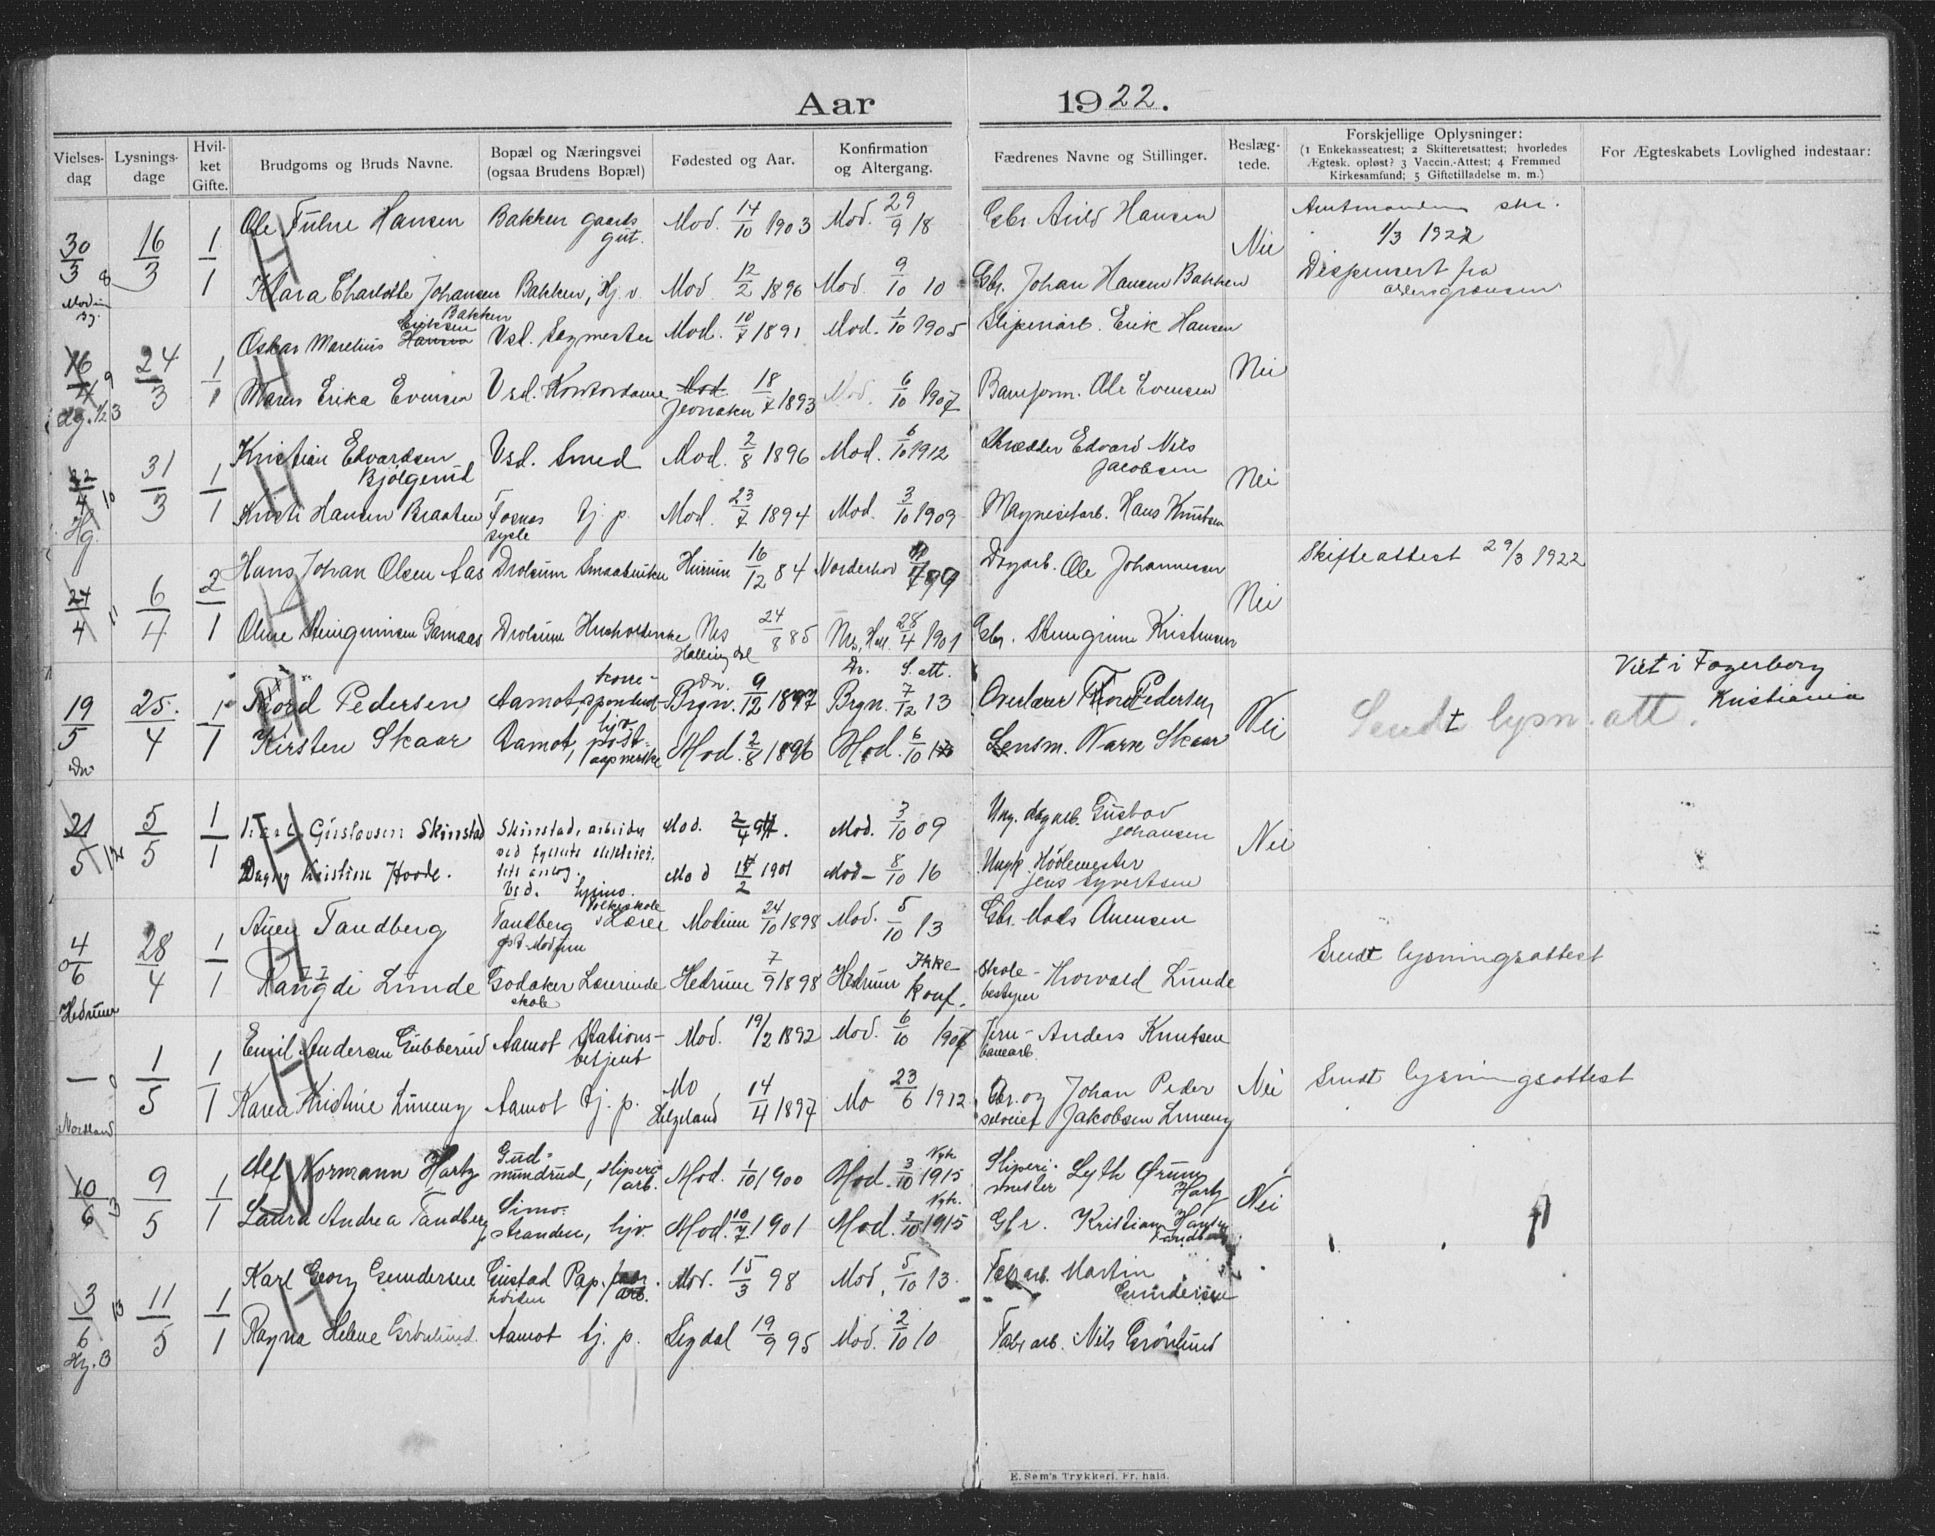 Aar 1922.
Vielses-dag
Lysnings-dage
Hvil-ket Gifte.
Brudgoms og Bruds Navne.
Bopæl og Næringsvei (ogsaa Brudens Bopæl)
Fødested og Aar.
Konfirmation og Altergang.
Fædrenes Navne og Stillinger.
Beslæg-tede.
Forskjellige Oplysninger:
(1 Enkekasseattest; 2 Skifteretsattest; hvorledes
Ægtesk. opløst? 3 Vaccin.-Attest; 4 Fremmed
Kirkesamfund; 5 Giftetilladelse m. m.)
For Ægteskabets Lovlighed indestaar:
30/3 8 16/3 1/1
Ole Hansen Bakken gaards gut. Mod. 14/10 1903 Mod. 29/9 18 Gbr. Hansen Nei
1/3 1922
Klara Charlotte Johansen Bakken Bakken, Hj. v. Mod. 12/2 1896 Mod. 9/10 10 Gbr. Johan Hansen Bakken Dispensert fra aldersgrænsen
16/4 9 24/3 1/1
Oskar Marelius Hansen Eriksen Vsd. Sagmester Mod. 10/7 1891 Mod. 1/10 1905 Sliperiarb. Erik Hansen Nei
Maren Erika Evensen Vsd. Mod Jevnaker 18/7 1893 Mod. 6/10 1907 Baneform. Ole Evensen
22/4 10 Hg. 31/3 1/1
Kristian Edvardsen Bjølgerud Vsd. Smed Mod. 2/8 1896 Mod. 6/10 1912 Skrædder Edvard Nils Jacobsen Nei
Kristi Hansen Braaten Fosnes sysle tj. p. Mod. 23/7 1894 Mod. 3/10 1909 Magnesitarb. Hans Knutsen
24/4 11 6/4 2/1
Hans Johan Olsen Aas Drolsum Hurum 16/12 84 Norderhov 99 Dagarb. Ole Johannesen Nei Skifteattest 29/3 1922
Oline Steingrimsen Garnaas Drolsum Nes Hallingdal 24/8 85 Nes, Hall. 28/4 1901 Gbr. Steingrim Kristensen
19/5 Dn. 25./4 1/1
Tord Pedersen Aamot, korre-spondent Dn. Brgn. 9/12 1897 Dn. S. att. Brgn. 7/12 13 Overlærer Tord Pedersen Nei Sendt lysn. att. Viet i Fagerborg Kristiania
Kirsten Skaar Aamot, hjv. post-aapnerske Mod. 2/8 1896 Mod. 6/10 Lensm. Narve Skaar
21/5 12 5/5 1/1
Gustavsen Skinstad Skinstad, arbeider Mod. 2/4 Mod. 3/10 09 Ung. dagarb. Gustav Johansen Nei
Dagny Kristine Hovde. Vsd. hjemv. Mod 2 1901 Mod- 8/10 16 Ungk. Høvlemester Jens Syvertsen
4/6 Hedrum 28/4 1/1
Tandberg Tandberg Øst Modum Folkeskole Lærer Modum 24/10 1898 Mod. 5/10 13 Gbr. Mads Anensen
Rangdi Lunde Godaker skole Lærerinde Hedrum 7/9 1898 Hedrum Ikke konf. Skole-bestyrer Thorvald Lunde Sendt lysningsattest
— Nordland 1/5 1/1
Emil Andersen Gubberud Aamot Stations-betjent Mod. 19/2 1892 Mod. 6/10 Jern-banearb. Anders Knutsen Nei Sendt lysningsattest
Karen Kristine Lineng Aamot tj. p. Mo Helgeland 14/4 1897 Mo 23/6 1912 Gbr. og selveier Johan Peder Jakobsen Lineng
10/6 13 9/5 1/1
Alf Normann Hartz Gud-mundrud, sliperi-arb. Mod. 1/10 1900 Mod. 3/10 1915 Nyk. Sliperi-mester Lyth Ørum Hartz Nei
Laura Andrea Tandberg Simo-stranden, hjv. Mod. 10/7 1901 Mod. 3/10 1915 Nyk. Gbr. Kristian Hansen Tandberg
3/6 Hg. 13 11/5 1/1
Karl Georg Gundersen Pap. fabr. arb. Mod. 15/3 98 Mod. 5/10 13. Fabr. arb. Martin Gundersen
Ragna Helene Grønlund. Aamot tj. p. Sigdal 19/9 95 Mod. 2/10 10 Fabr. arb. Nils Grønlund
E. Sem's Trykkeri, Fr. hald.